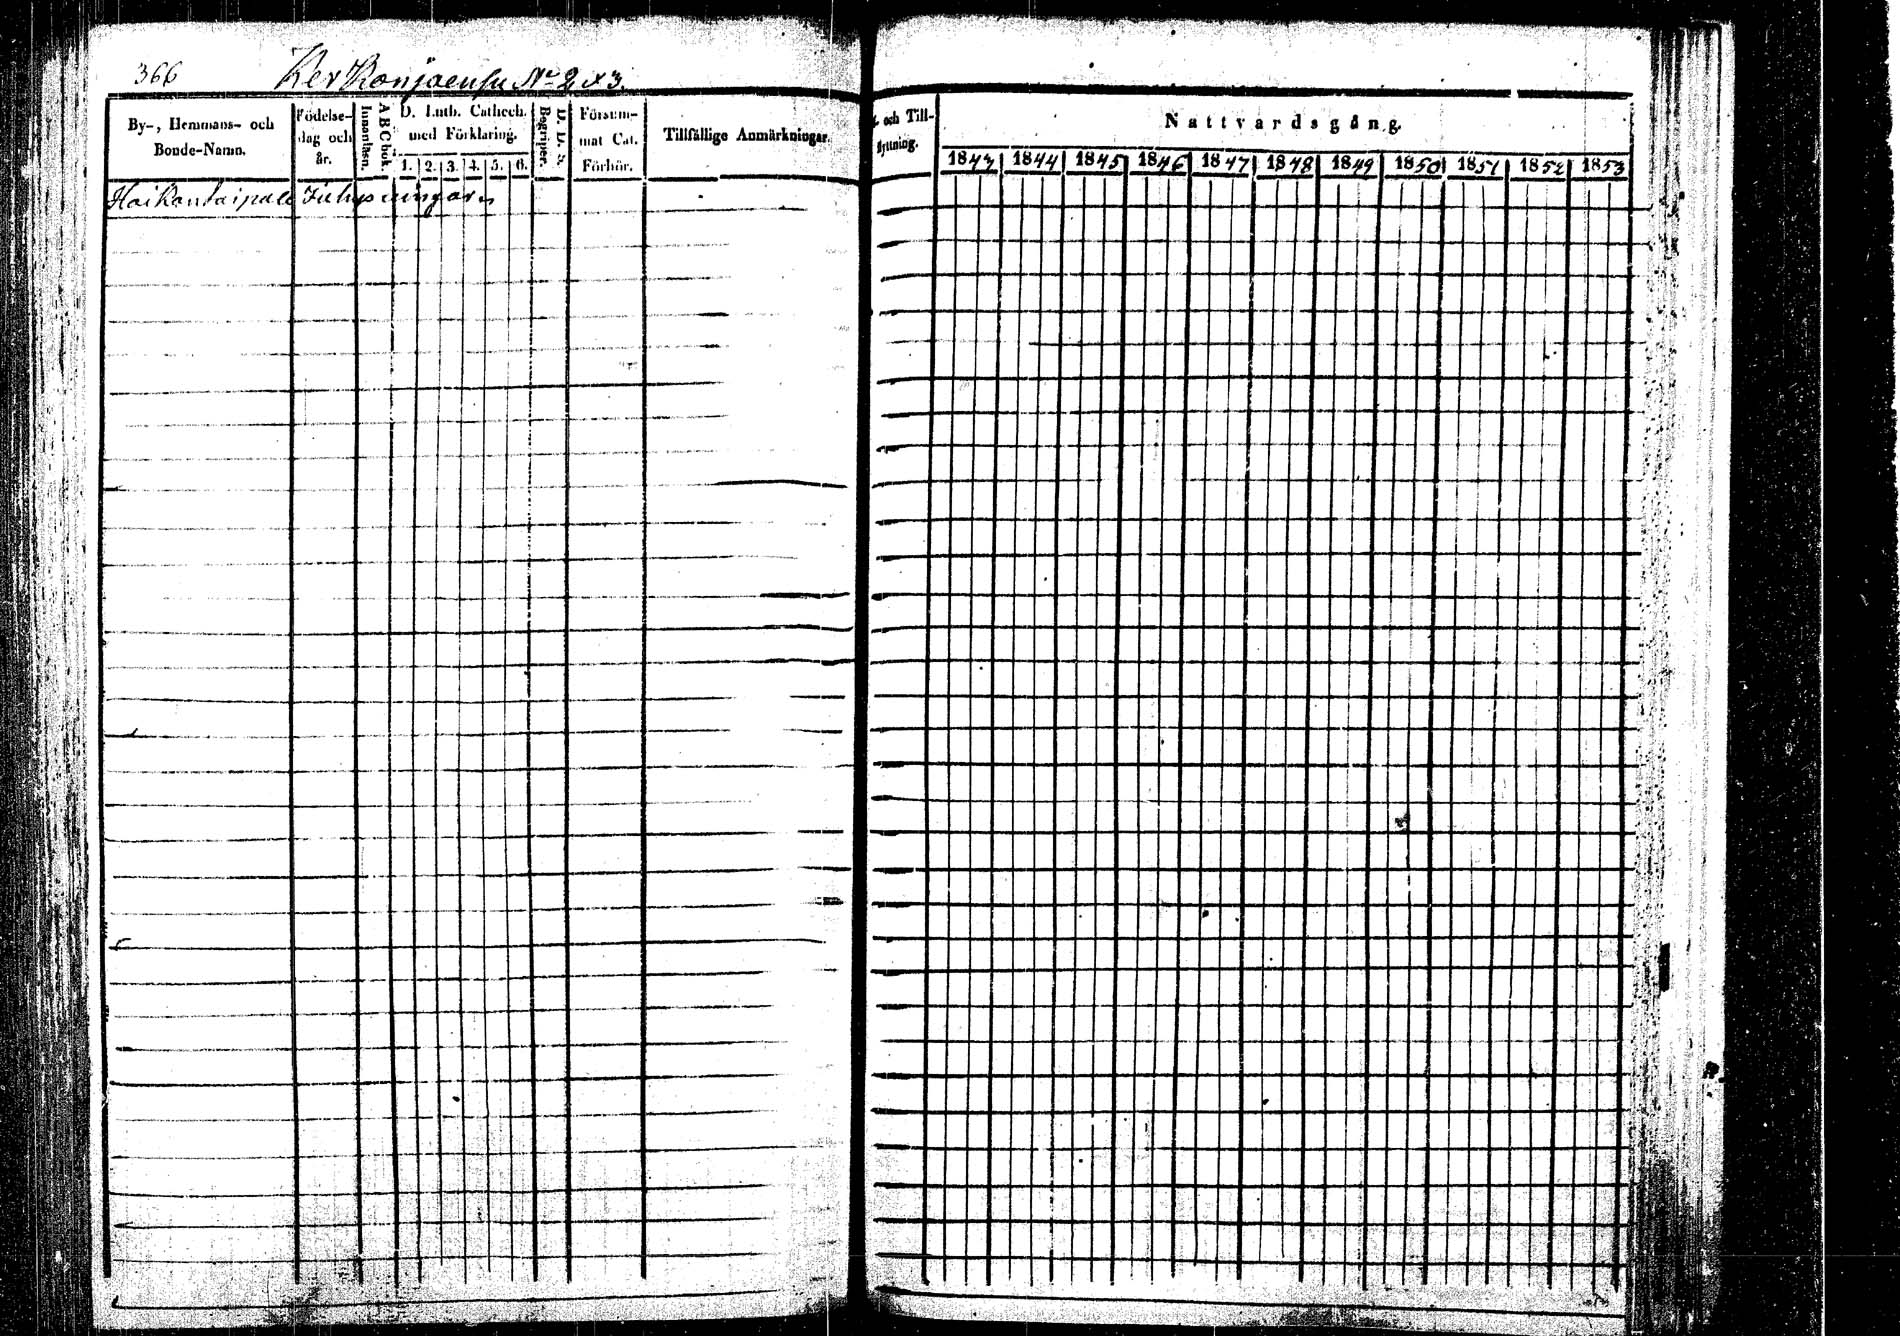 366 Kerkonjoensu No 2 & 3.
By-, Hemmans- och Bonde-Namn.
Födelse-dag och år.
Innanläsn.
A B C bok.
D. Luth. Cathech. med Förklaring.
1. 2. 3. 4. 5. 6.
Begriper.
D. D. S.
Försum-mat Cat. Förhör.
Tillfällige Anmärkningar.
och Till-flyttning.
Nattvardsgång.
1843 1844 1845 1846 1847 1848 1849 1850 1851 1852 1853
Hoikantaipale Inhysningar